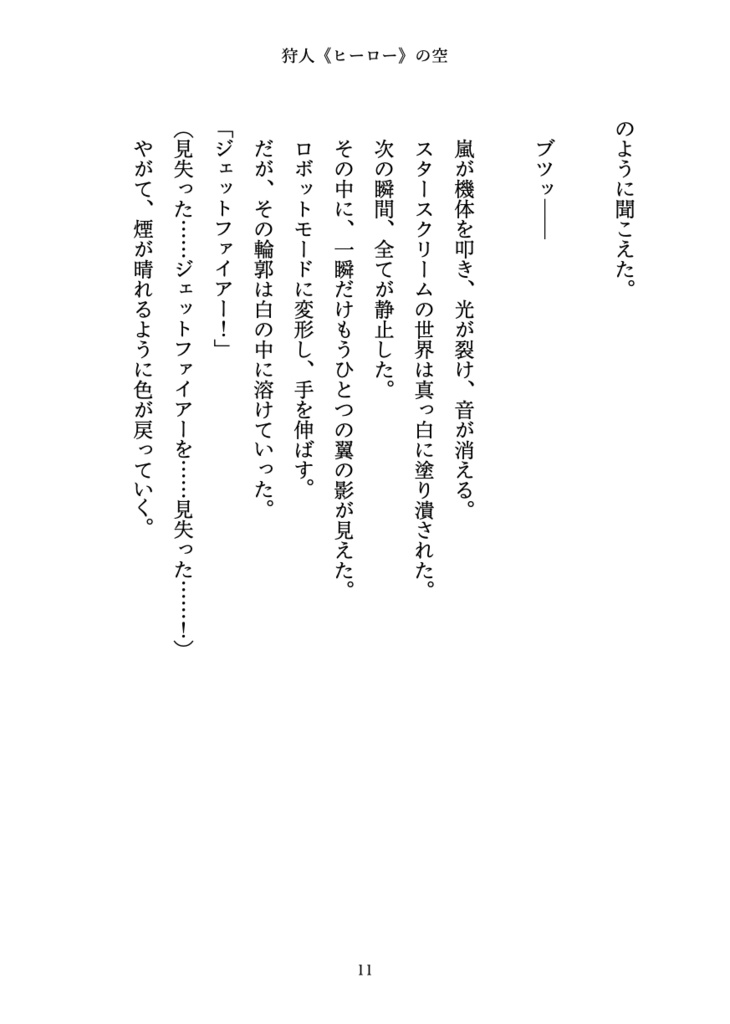 狩人《ヒーロー》の空
のように聞こえた。
ブツッ――
嵐が機体を叩き、光が裂け、音が消える。
スタースクリームの世界は真っ白に塗り潰された。
次の瞬間、全てが静止した。
その中に、一瞬だけもうひとつの翼の影が見えた。
ロボットモードに変形し、手を伸ばす。
だが、その輪郭は白の中に溶けていった。
「ジェットファイアー！」
（見失った……ジェットファイアーを……見失った……！）
やがて、煙が晴れるように色が戻っていく。
11